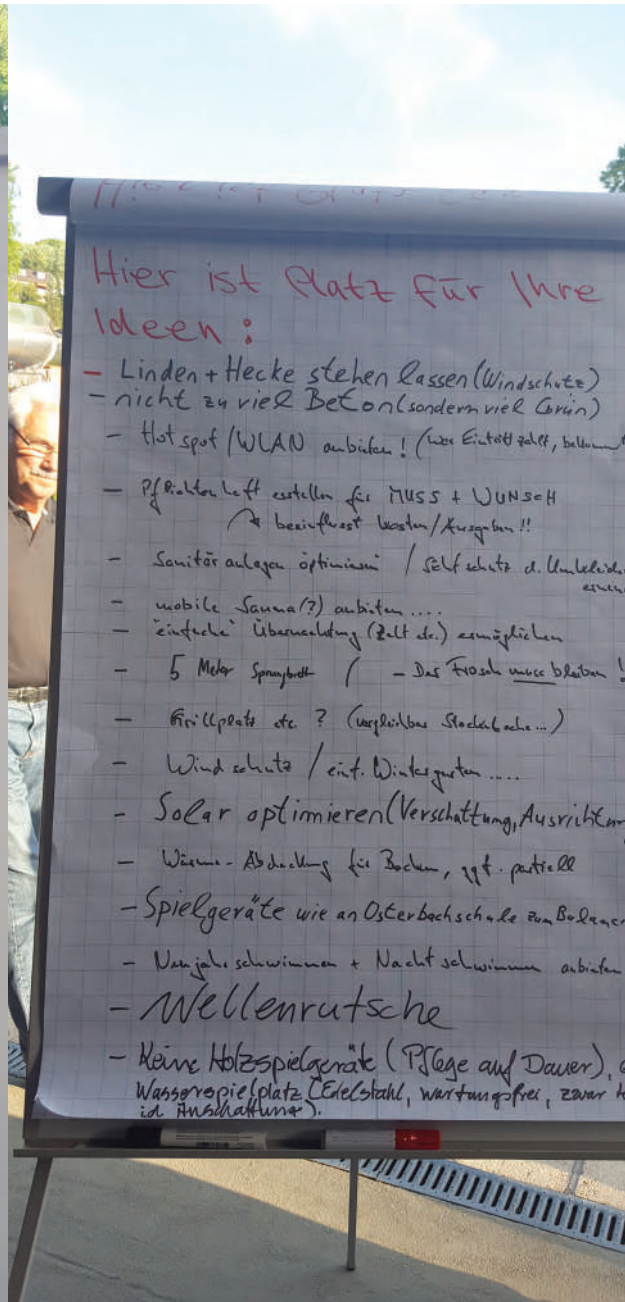 Hier ist Platz für Ihre
Ideen:
- Linden + Hecke stehen lassen (Windschutz)
- nicht zu viel Beton (sondern viel Grün)
- Hot spot / WLAN anbieten! (wer Eintritt zahlt, bekommt
- Pflichtenheft erstellen für MUSS + WUNSCH
beeinflusst Kosten/Ausgaben!!
- Sanitäranlagen optimieren / d. Umkleide
- mobile Sauna(?) anbieten ....
- "einfache" Übernachtung (Zelt etc.) ermöglichen
- 5 Meter Sprungbrett / - Der Frosch muss bleiben!
- Grillplatz etc. ? (vergleichbar
- Windschutz / einf. Wintergarten .....
- Solar optimieren (Verschattung, Ausrichtun
- Wärme-Abdeckung für Becken, ggf. partiell
- Spielgeräte wie an Osterbachschule zum Balanc
- Neujahrschwimmen + Nachtschwimmen anbieten
- Wellenrutsche
- Keine Holzspielgeräte (Pflege auf Dauer),
Wasserspielplatz (Edelstahl, wartungsfrei, zwar
id Anschaffung).